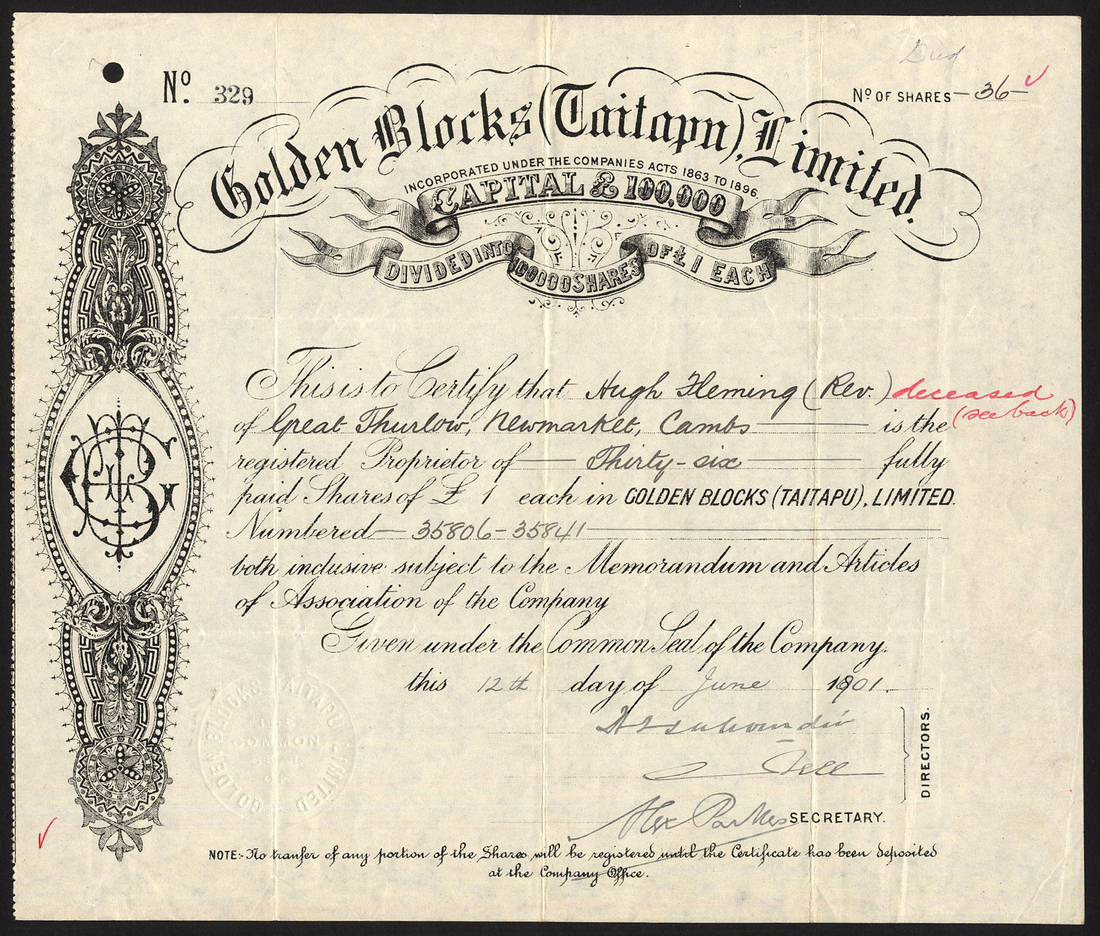 Died
Nº. 329
Nº OF SHARES - 36 -
Golden Blocks (Taitapu), Limited.
INCORPORATED UNDER THE COMPANIES ACTS 1863 TO 1896.
CAPITAL £ 100,000
DIVIDED INTO 100000 SHARES OF £1 EACH
This is to Certify that Hugh Fleming (Rev.) deceased
(see back)
of Great Thurlow, Newmarket, Cambs is the
registered Proprietor of Thirty-six fully
paid Shares of £ 1 each in GOLDEN BLOCKS (TAITAPU), LIMITED.
Numbered 35806-35841
both inclusive subject to the Memorandum and Articles
of Association of the Company
Given under the Common Seal of the Company.
this 12th day of June 1901.
DIRECTORS.
Alex Parkes SECRETARY.
GOLDEN BLOCKS TAITAPU LIMITED
COMMON
NOTE:- No tranfer of any portion of the Shares will be registered until the Certificate has been deposited
at the Company Office.